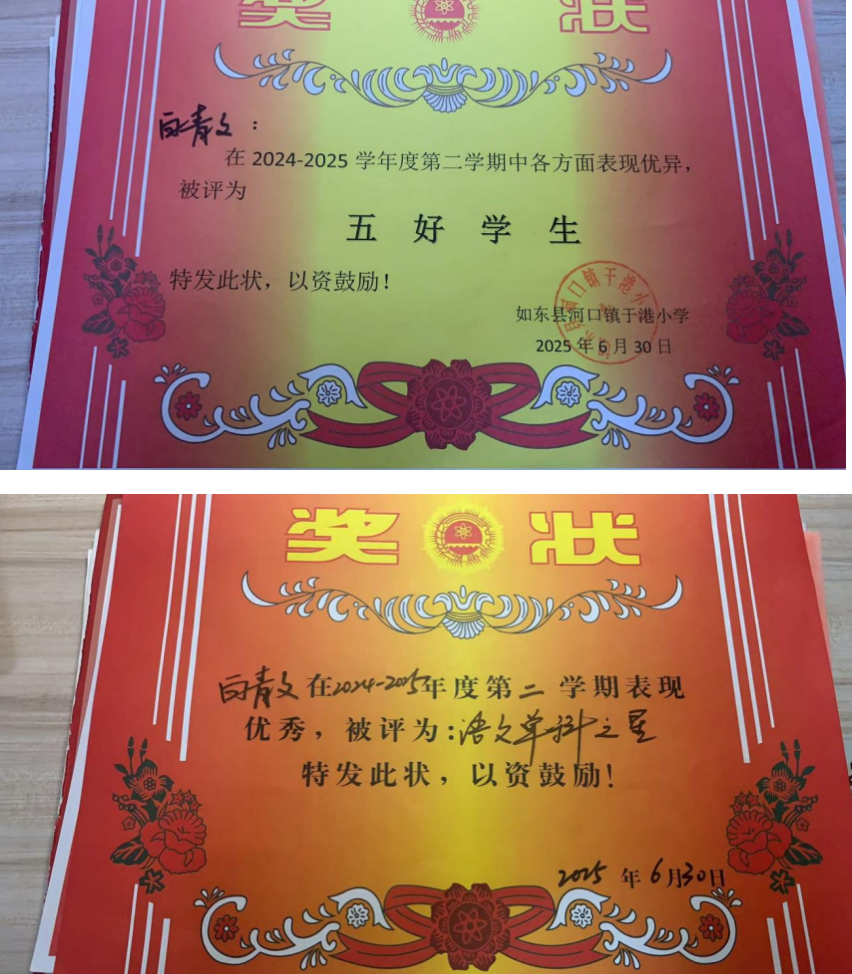 奖 状
白青文：
在 2024-2025 学年度第二学期中各方面表现优异，
被评为
五 好 学 生
特发此状，以资鼓励！
如东县河口镇于港小学
2025 年 6 月 30 日
奖 状
白青文在2024-2025年度第二学期表现
优秀，被评为：语文单科之星
特发此状，以资鼓励！
2025 年 6 月 30 日